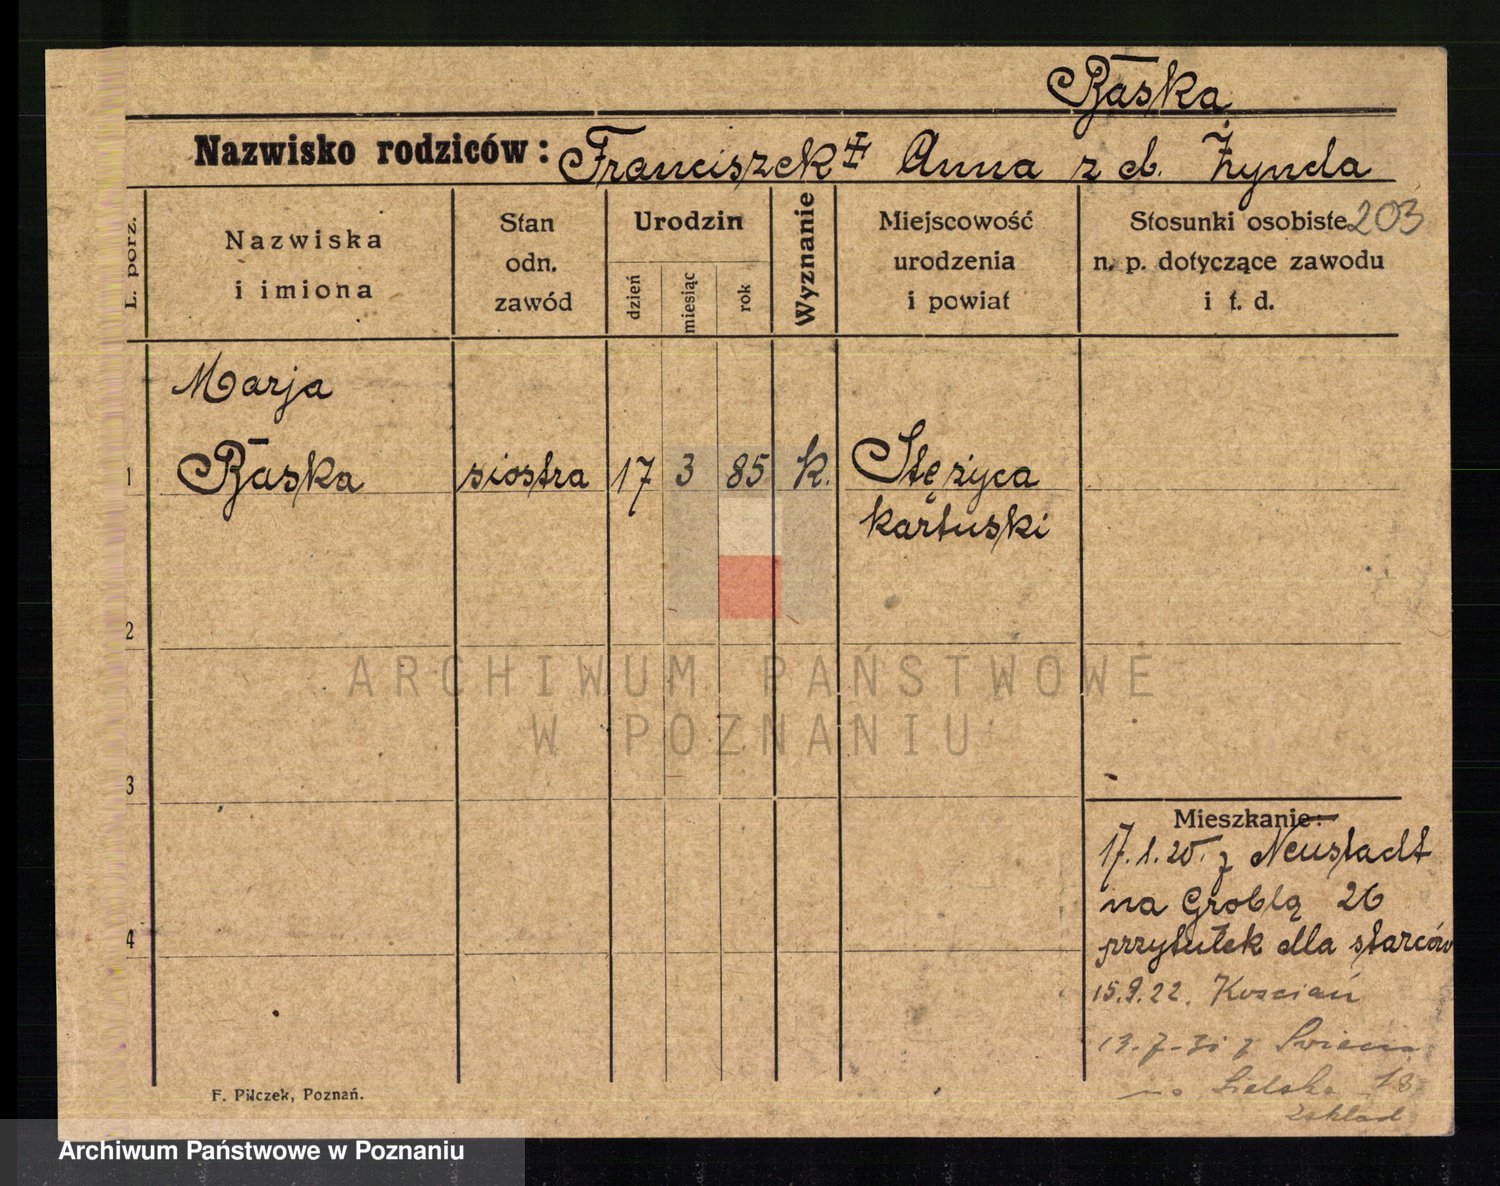 Baska
Nazwisko rodziców: Franciszek ‡ Anna z d. Żynda
L. porz.
Nazwiska
i imiona
Stan
odn.
zawód
Urodzin
dzień
miesiąc
rok
Wyznanie
Miejscowość
urodzenia
i powiat
Stosunki osobiste 203
n. p. dotyczące zawodu
i t. d.
Marja
1 Baska siostra 17 3 85 k. Stężyca
kartuski
2
ARCHIWUM PAŃSTWOWE
W POZNANIU
3
Mieszkanie:
17.1.20. z Neustadt
na Groblą 26
4 przytułek dla starców
15.9.22. Koscian
13-7-31 z
18
Zakład
F. Pilczek, Poznań.
Archiwum Państwowe w Poznaniu